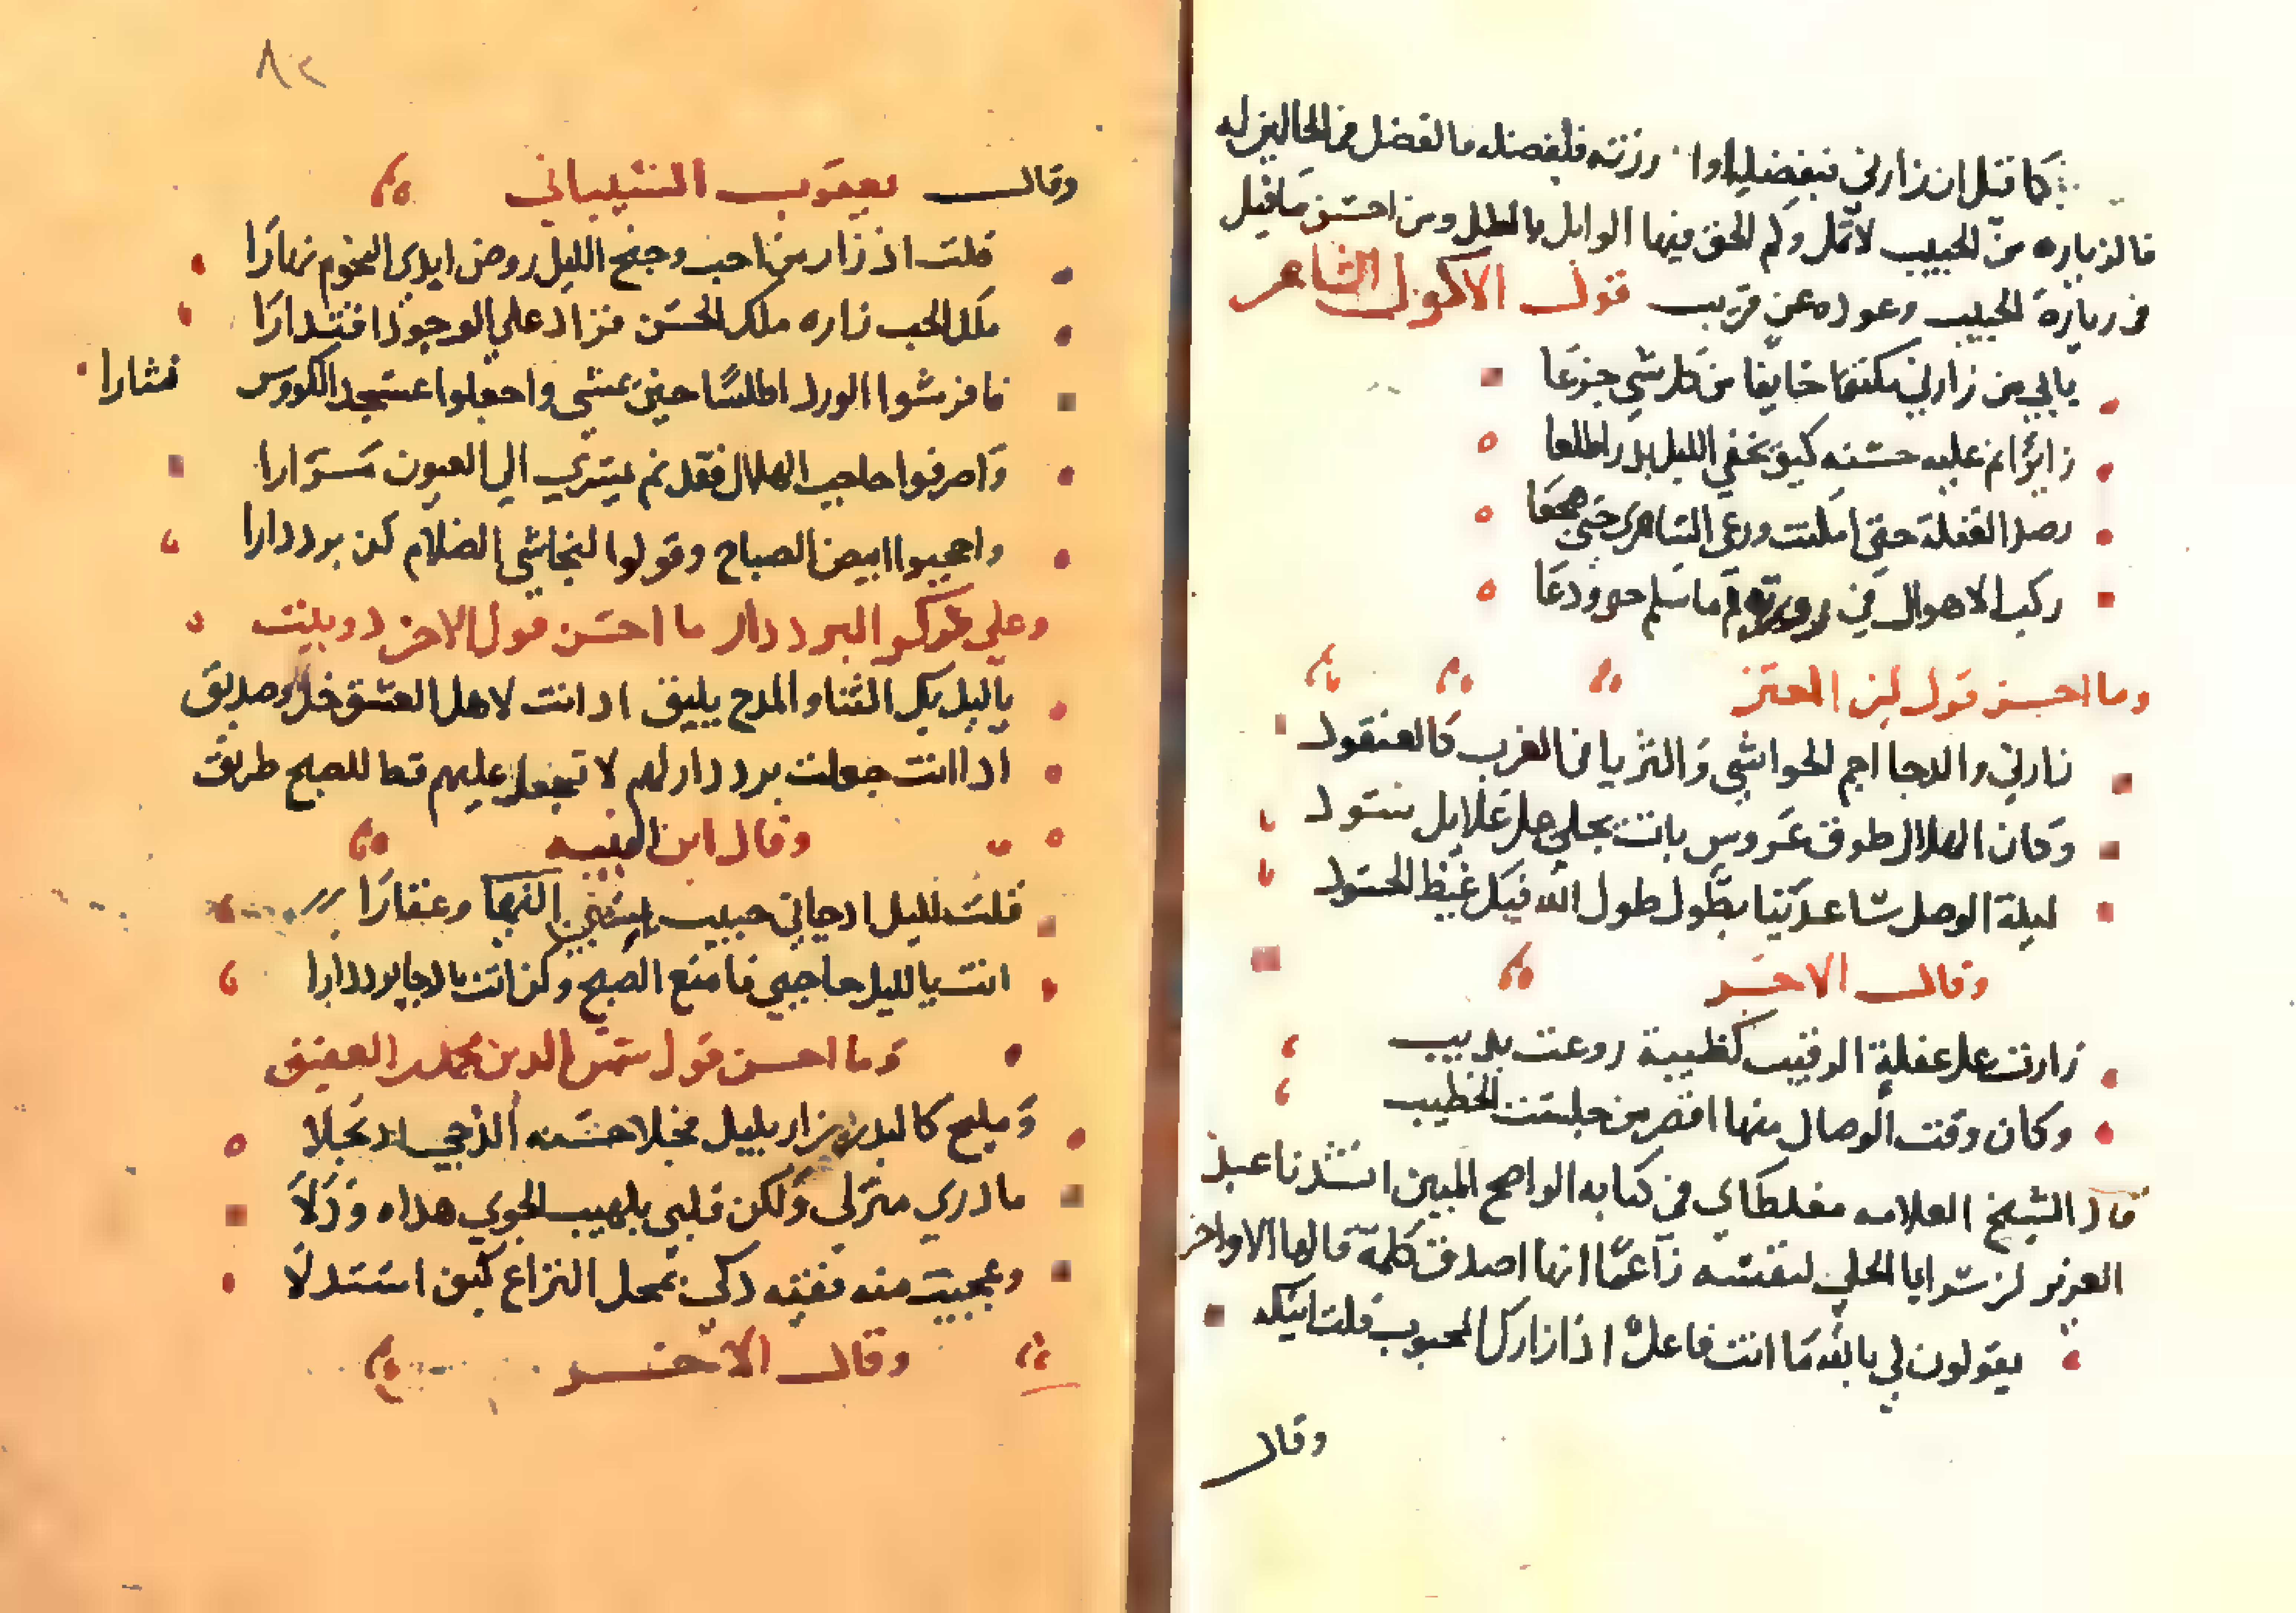 كما قيل ان زارني فبفضله اوا زرته فلفضله فالفضل في الحالين له
فالزياره من الحبيب لا تمل ولم الحق فيها الوابل بالطل ومن احسن ما قيل
في زيارة الحبيب وعوده عن قريب قول الاكول الشاعر
بابي من زارني مكتتما خايفا من كل شي جزعا
زائرا نم عليه حسنه كيف يخفي الليل بدرا طلعا
رصد الغفلة حتى امكنت ورعى السامر حتى هجعا
ركب الاهوال في زورته ثم ما سلم حتى ودعا
وما احسن قول ابن المعتز
زارني والدجا احم الحواشي والثريا في الغرب كالعنقود
وكان الهلال طوق عروس باتت تجلى على غلايل سود
ليلة الوصل ساعدينا بطول طول الله فيك غيظ الحسود
وقال الاخر
زارت على غفلة الرقيب كظبية روعت بذيب
وكان وقت الوصال منها اقصر من جلست الخطيب
قال الشيخ العلامه مغلطاي في كتابه الواضح المبين انشدنا عبد
العزيز بن سرايا الحلي لنفسه زاعما انها اصدق كلمة قالها الاواخر
يقولون لي بالله ما انت فاعل اذا زارك المحبوب قلت انيكه
وقال
٨٢
وقال يعقوب الشيباني
قلت اذ زار من احب وجنح الليل روض ايدى النجوم نهارا
ملك الحب زاره ملك الحسن فزاد على الوجود اقتدارا
فافرشوا الورد اطلسا حين عشي واجعلوا عسجد الكووس نثارا
واصرفوا حاجب الهلال فقد نم يتري الي العيون سرارا
واحجبوا ابيض الصباح وقولوا لنجاشي الضلام كن برددارا
وعلي ذكر البرددار ما احسن قول الاخر دوبيت
ياليل بكل الثنا والمدح يليق اد انت لاهل العشق خل وصديق
ادا انت جعلت برددار لهم لا تجعل عليهم قط للصبح طريق
وقال ابن النبيه
قلت لليل ادجاني حبيب يسبي النها وعقارا
انت ياليل حاجبي فامنع الصبح وكن انت يا دجا برددارا
وما احسن قول شمس الدين محمد العفيف
ومليح كالبدر زار بليل فجلا حسنه الدجي اد تجلا
ما دري منزلي ولكن قلبي بلهيب الجوي هداه ودلا
وعجيب منه فقيه دكي بمحل النزاع كيف استدلا
وقال الاخر